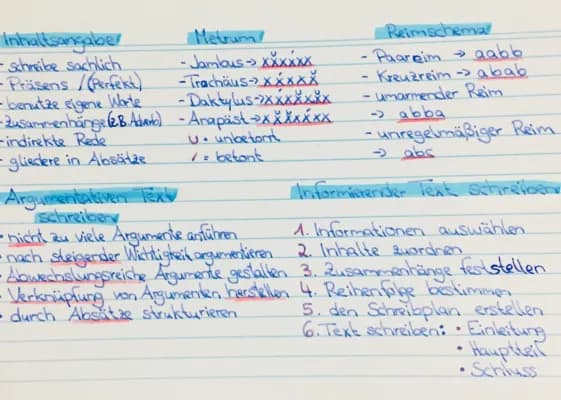 Inhaltsangabe
- schreibe sachlich
- Präsens /(Perfekt)
- benutze eigene Worte
- Zusammenhänge (z.B. Adverb)
- indirekte Rede
- gliedere in Absätze
Metrum
- Jambus → x̆x́x̆x́x̆x́
- Trochäus → x́x̆x́x̆x́x̆
- Daktylus → x́x̆x̆x́x̆x̆
- Anapäst → x̆x̆x́x̆x̆x́
∪ = unbetont
/ = betont
Reimschema
- Paareim → aabb
- Kreuzreim → abab
- umarmender Reim
→ abba
- unregelmäßiger Reim
→ abc
Argumentativen Text
schreiben
• nicht zu viele Argumente anführen
• nach steigender Wichtigkeit argumentieren
• Abwechslungsreiche Argumente gestalten
• Verknüpfung von Argumenten herstellen
• durch Absätze strukturieren
Informierender Text schreiben
1. Informationen auswählen
2. Inhalte zuordnen
3. Zusammenhänge feststellen
4. Reihenfolge bestimmen
5. den Schreibplan erstellen
6. Text schreiben: • Einleitung
• Hauptteil
• Schluss